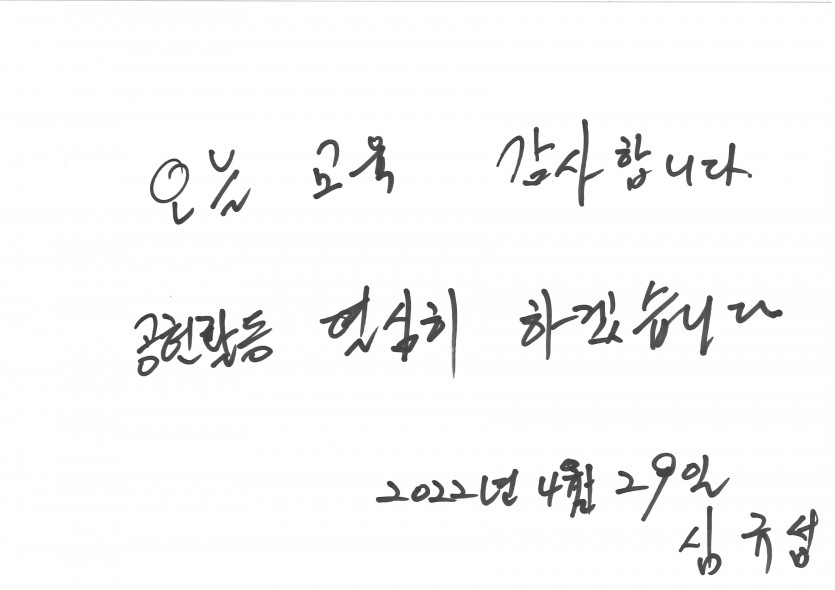 오늘 교육 감사합니다.
공헌활동 열심히 하겠습니다
2022년 4월 29일
심규섭